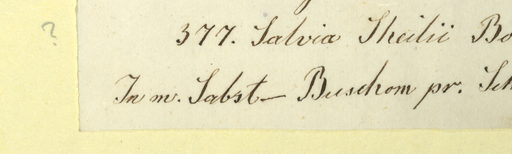 ?
377. Salvia Sheilii Bo
In m. Sabst— Buschom pr. Sch